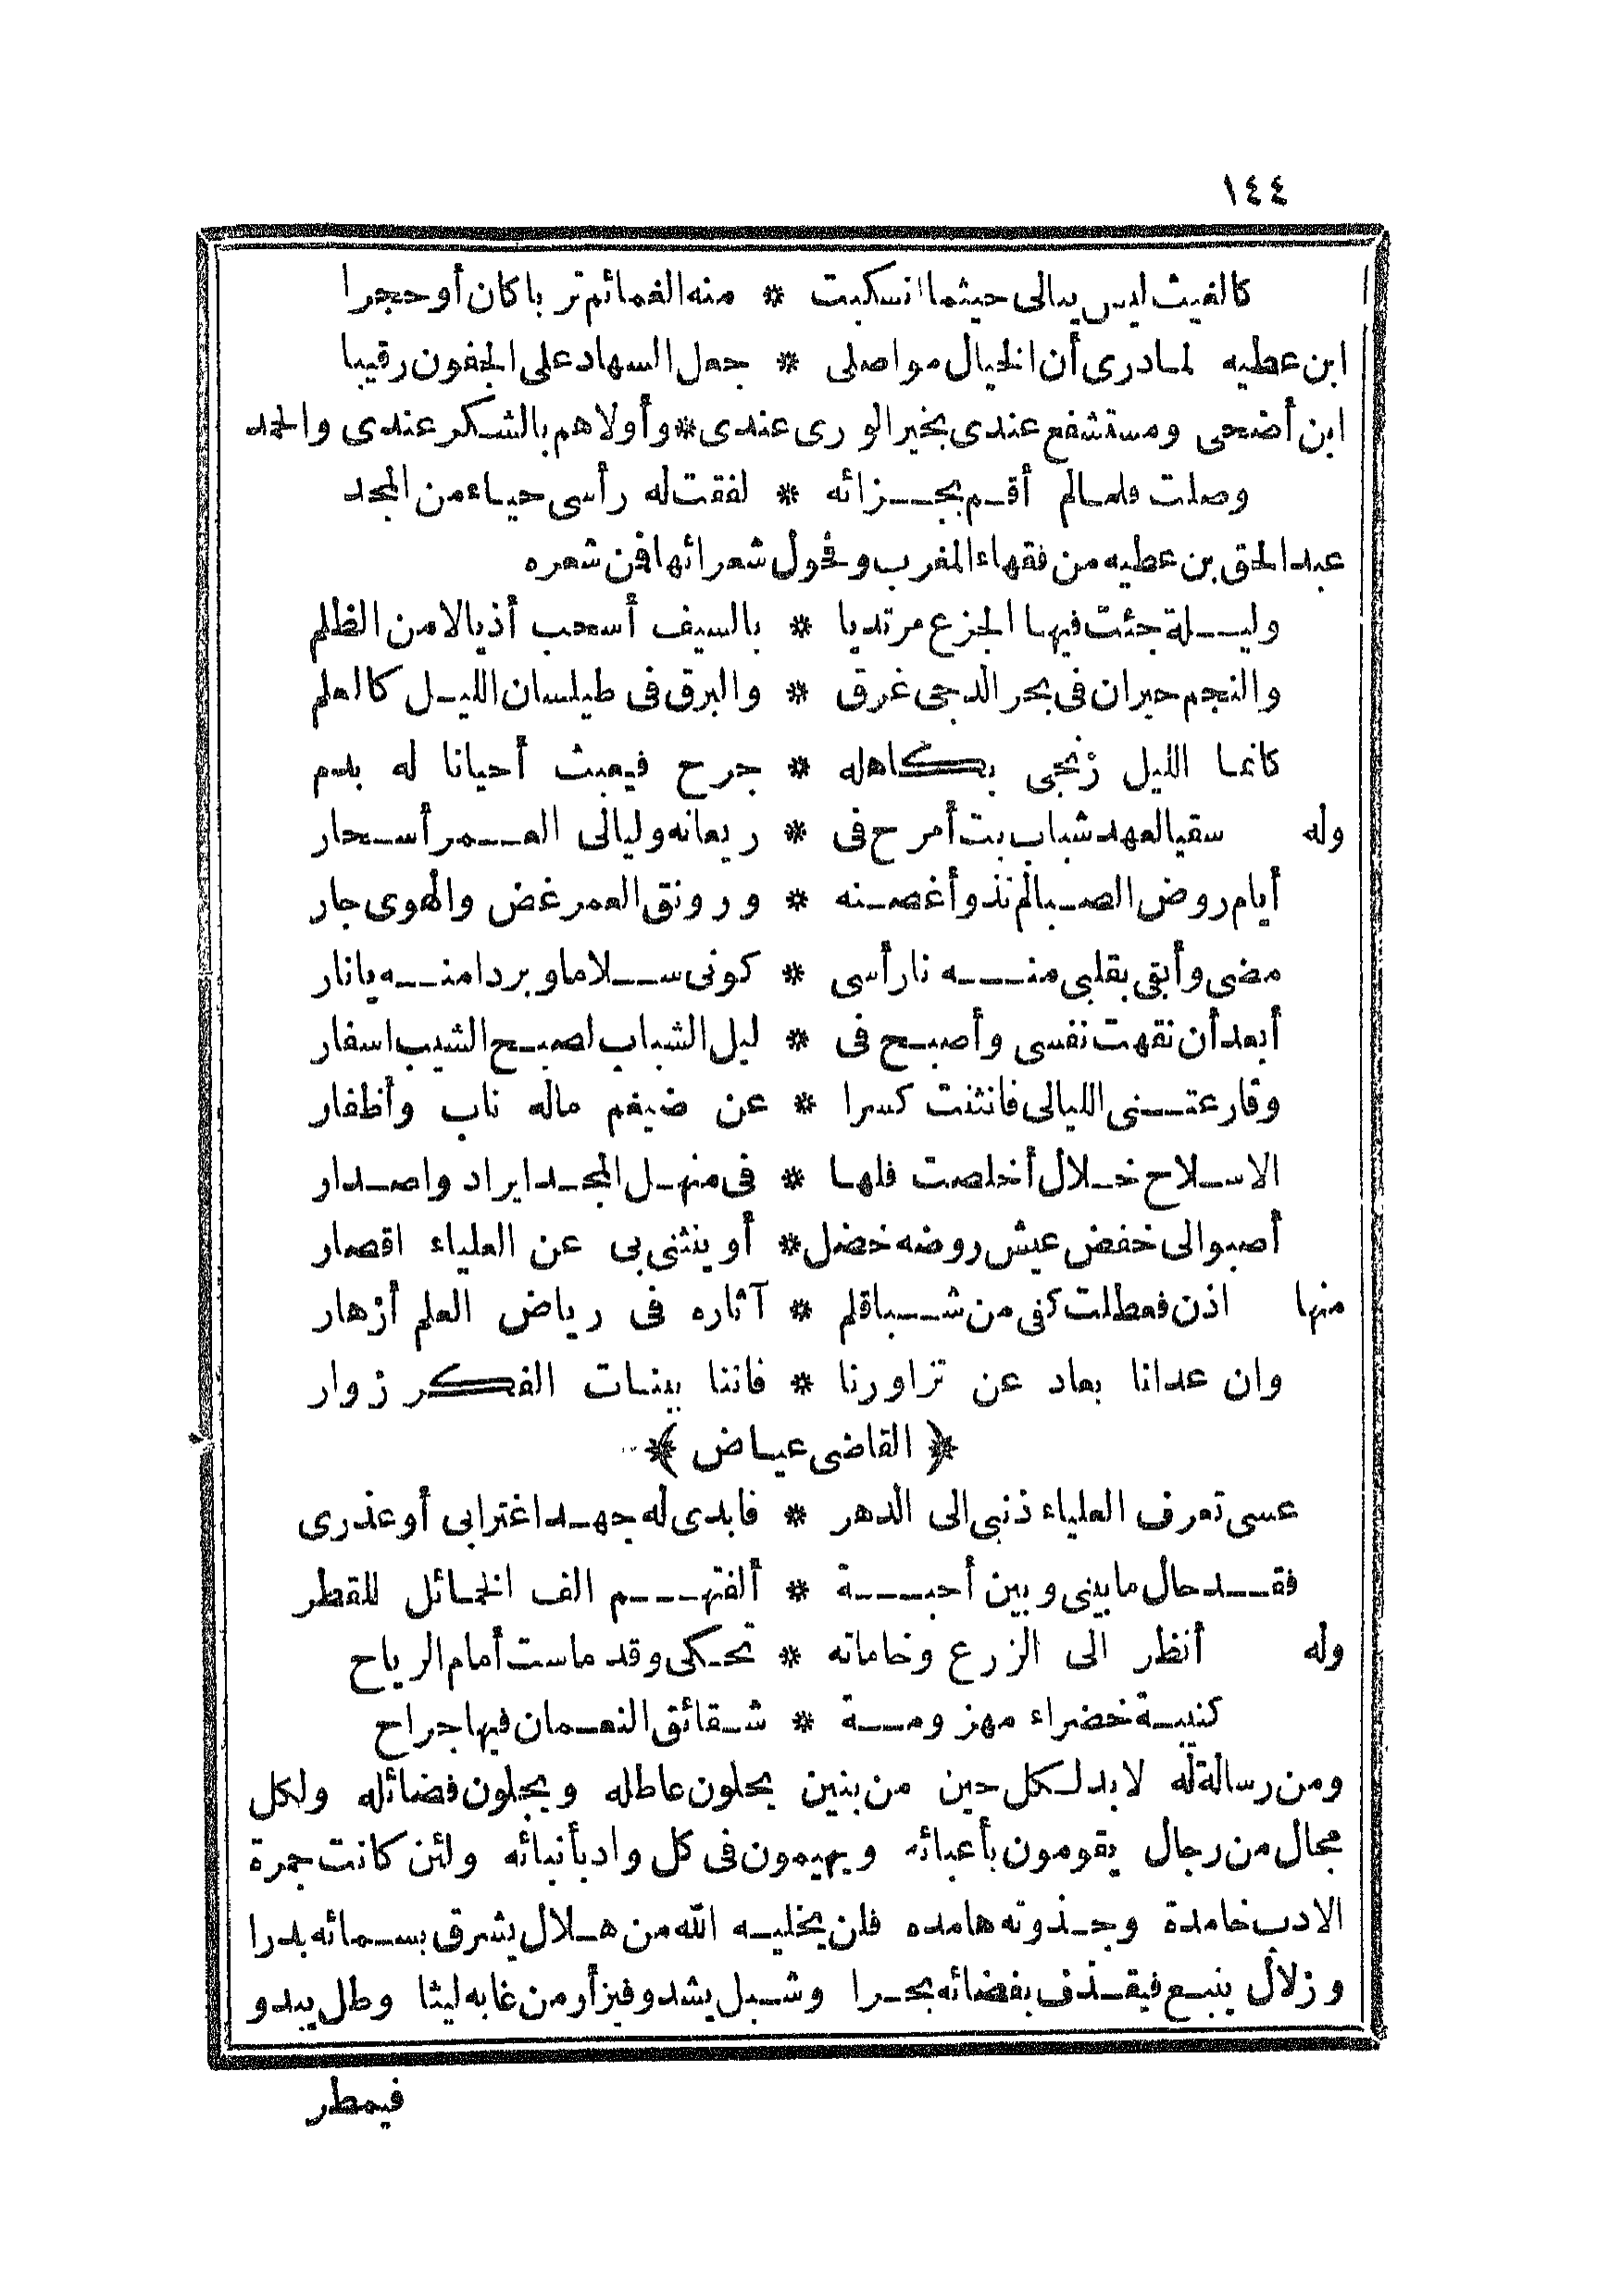 ١٤٤
كالغيث ليس يبالى حيثما انسكبت * منه الغمائم تربا كان أو حجرا
ابن عطيه لمادرى أن الخيال مواصلى * جعل السهاد على الجفون رقيبا
ابن أضحى ومستشفع عندى بخير الورى عندى * وأولاهم بالشكر عندى والحمد
وصلت فلمالم أقم بجزائه * لففت له رأسى حياء من المجد
عبد الحق بن عطيه من فقهاء المغرب وفحول شعرائها فمن شعره
وليلة جئت فيها الجزع مرتديا * بالسيف أسحب أذيالا من الظلم
والنجم حيران فى بحر الدجى غرق * والبرق فى طيلسان الليل كالعلم
كانما الليل زنجى بكاهله * جرح فيعبث أحيانا له بدم
وله سقيالعهد شباب بت أمرح فى * ريعانه وليالى العمر أسحار
أيام روض الصبالم تذو أغصنه * ورونق العمر غض والهوى جار
مضى وأبقى بقلبى منه نار أسى * كونى سلاما وبردامنه يانار
أبعد أن نقهت نفسى وأصبح فى * ليل الشباب لصبح الشيب اسفار
وقارعتنى الليالى فانثنت كسرا * عن ضيغم ماله ناب وأظفار
الاسلاح خلال أخلصت فلها * فى منهل المجد ايراد واصدار
أصبوالى خفض عيش روضه خضل * أو ينثنى بى عن العلياء اقصار
منها اذن فعطلت كفى من شباقلم * آثاره فى رياض العلم أزهار
وان عدانا بعاد عن تزاورنا * فاننا ببنات الفكر زوار
﴿ القاضى عياض ﴾
عسى تعرف العلياء ذنبى الى الدهر * فابدى له جهد اغترابى أو عذرى
فقد حال مابينى وبين أحبة * ألفتهم الف الخمائل للقطر
وله أنظر الى الزرع وخاماته * تحكى وقد ماست أمام الرياح
كتيبة خضراء مهزومة * شقائق النعمان فيها جراح
ومن رسالة له لا بد لكل حين من بنين يحلون عاطله ويجلون فضائله ولكل
مجال من رجال يقومون بأعبائه ويهيمون فى كل واد بأنبائه ولئن كانت جمرة
الادب خامدة وجذوته هامده فلن يخليه الله من هلال يشرق بسمائه بدرا
وزلال ينبع فيقذف بفضائه بحرا وشبل يشدو فيزأر من غابه ليثا وطل يبدو
فيمطر